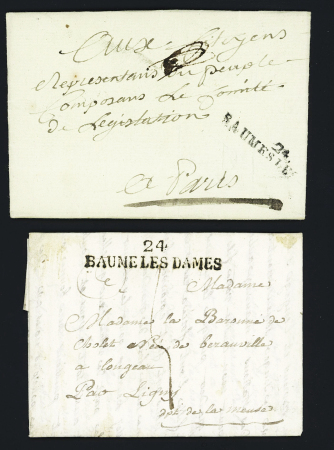 Aux Citoyens
Representans du peuple
Composans Le Comité
De Legislation
24
BAUMES LE
A Paris
24
BAUME LES DAMES
Madame
Madame la Baronne de
Cholet Née de
a Longeau
Par Ligny
dpt de la meuse